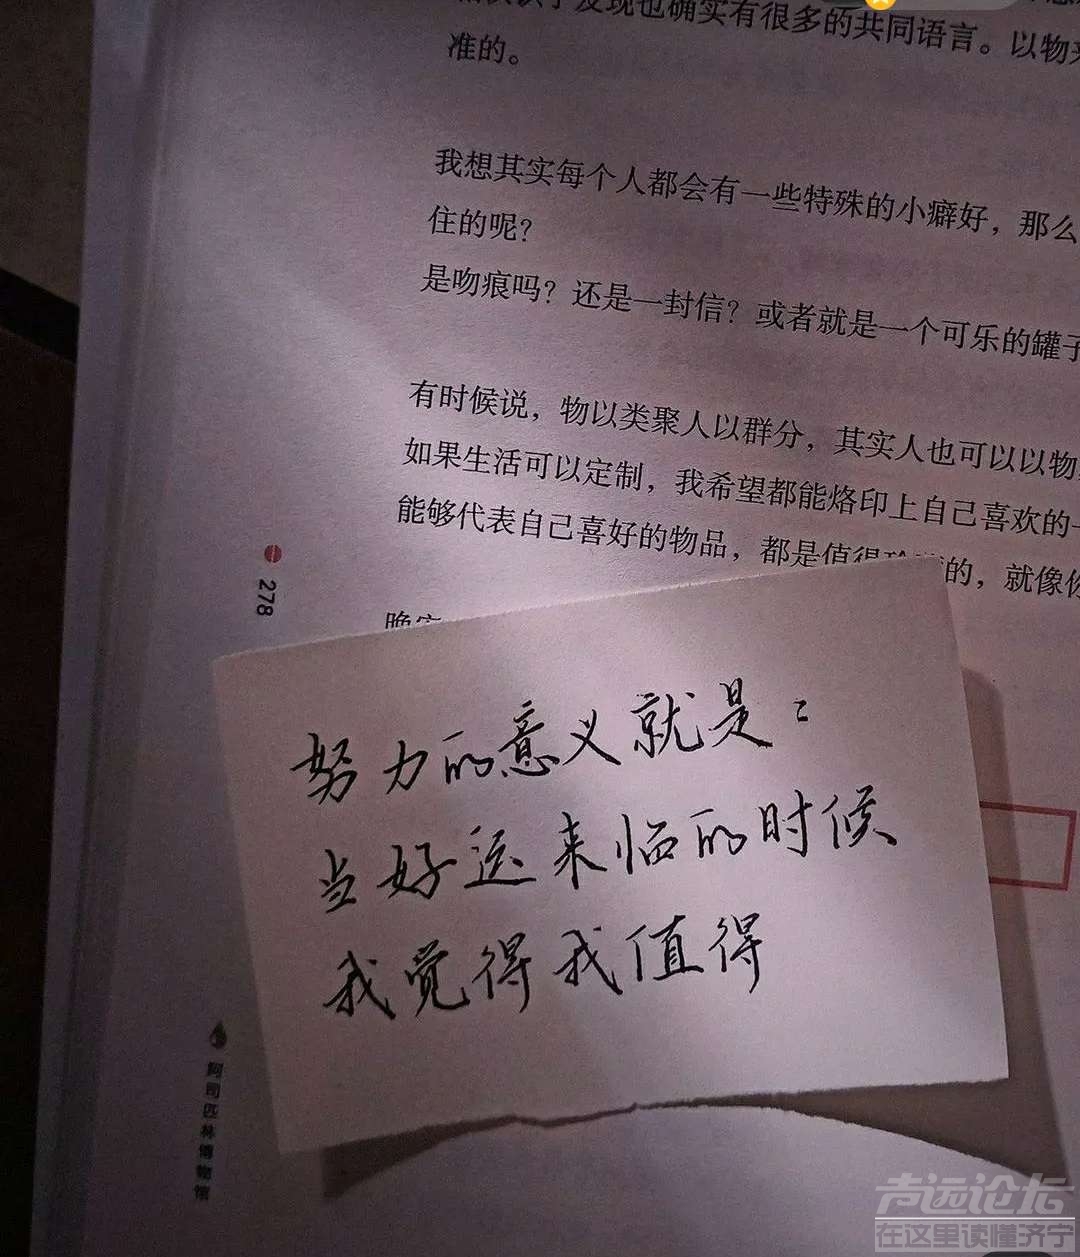 发现也确实有很多的共同语言。以物
准的。
我想其实每个人都会有一些特殊的小癖好，那么
住的呢？
是吻痕吗？还是一封信？或者就是一个可乐的罐子
有时候说，物以类聚人以群分，其实人也可以以物
如果生活可以定制，我希望都能烙印上自己喜欢的一
能够代表自己喜好的物品，都是值得的，就像你
晚安
278
努力的意义就是：
当好运来临的时候
我觉得我值得
阿司匹林博物馆
声远论坛
在这里读懂济宁